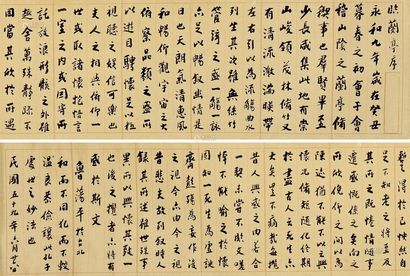 臨蘭亭序
永和九年歲在癸丑
暮春之初會于會
稽山陰之蘭亭脩
禊事也群賢畢至
少長咸集此地有崇
山峻領茂林脩竹又
有清流激湍暎帶
左右引以為流觴曲水
列坐其次雖無絲竹
管弦之盛一觴一詠
亦足以暢敘幽情
是日也天朗氣清惠風
和暢仰觀宇宙之大
俯察品類之盛所
以遊目騁懷足以極
視聽之娛信可樂也
夫人之相與俯仰一
世或取諸懷抱悟言
一室之內或因寄所
託放浪形骸之外雖
趣舍萬殊靜躁不
同當其欣於所遇
暫得於己怏然自
足不知老之將至及
其所之既惓情隨事
遷感慨係之矣向之
所欣俛仰之間以為
陳迹猶不能不以之興
懷況脩短隨化終期
於盡古人云死生亦
大矣豈不痛哉每攬
昔人興感之由若合
一契未嘗不臨文嗟
悼不能喻之於懷
固知一死生為虛誕
齊彭殤為妄作後
之視今亦由今之視
昔悲夫故列敘時人
錄其所述雖世殊事
異所以興懷其致一
也後之攬者亦將有
感於斯文
魯蕩平於台北
和而不同
溫良恭儉讓此孔子
處世之妙法也
民國五十九年八月廿